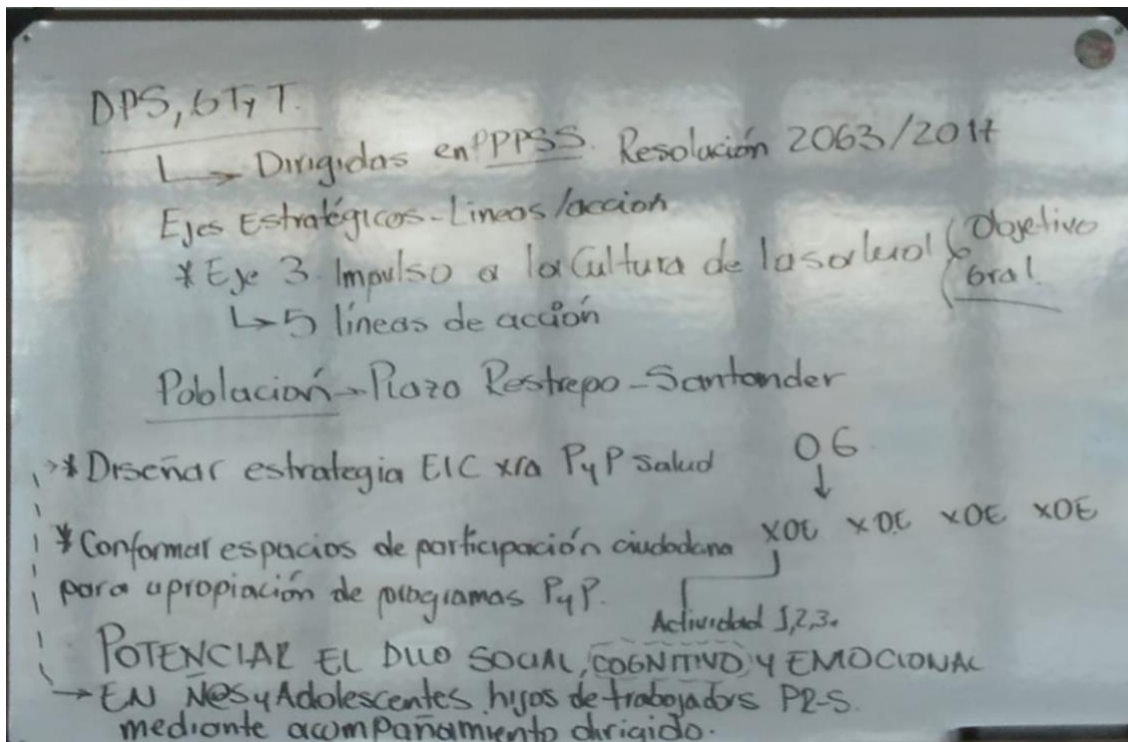 DPS, GTyT.
↳ Dirigidas en PPPSS. Resolución 2063/2017
Ejes Estratégicos - Lineas/accion
* Eje 3. Impulso a la Cultura de la salud (Objetivo Gral.
↳ 5 líneas de acción
Población - Plaza Restrepo - Santander
* Diseñar estrategia EIC xra PyP Salud
OG
↓
* Conformar espacios de participación ciudadana
para apropiación de programas PyP.
XOE XOE XOE XOE
Actividad 1,2,3.
POTENCIAR EL DLLO SOCIAL, COGNITIVO Y EMOCIONAL
→ EN Ñ@S y Adolescentes hijos de trabajadors PR-S.
mediante acompañamiento dirigido.